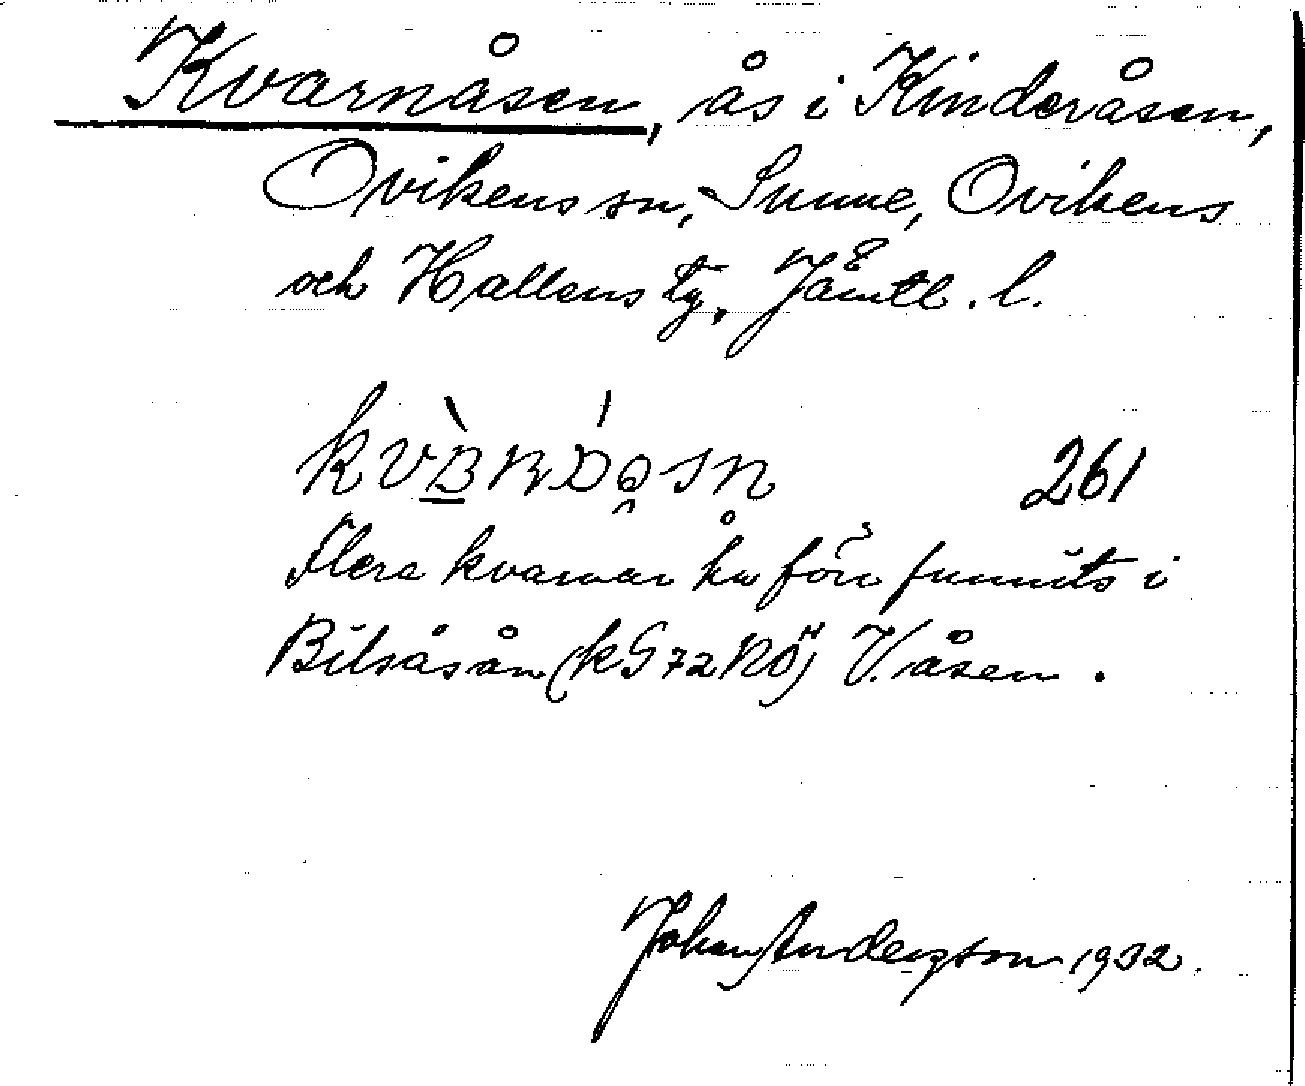 Kvarnåsen, ås i Kinderåsen,
Ovikens sn, Sunne, Ovikens
och Hallens tg, Jämtl. l.
261
Flera kvarnar ha förr funnits i
Bilsåsån (kG72NÖ) V. åsen.
Johan Anderzson 1932.